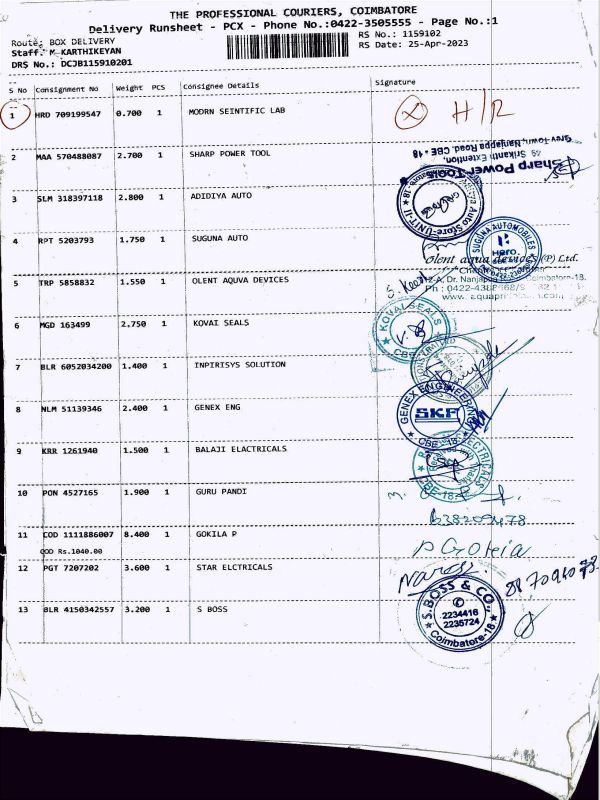 THE PROFESSIONAL COURIERS, COIMBATORE
Delivery Runsheet - PCX - Phone No.:0422-3505555 - Page No.:1
Route: BOX DELIVERY
RS No.: 1159102
Staff: M KARTHIKEYAN
RS Date: 25-Apr-2023
DRS No.: DCJB115910201
S No Consignment No Weight PCS Consignee Details Signature
1 HRD 709199547 0.700 1 MODRN SEINTIFIC LAB H/R
2 MAA 570488087 2.700 1 SHARP POWER TOOL
Sharp Power Tools
49, Srikanth Extention,
Grey Town, Nanjappa Road, CBE - 18
3 SLM 318397118 2.800 1 ADIDIYA AUTO
Auto Store-UNIT-II
4 RPT 5203793 1.750 1 SUGUNA AUTO
SUGUNA AUTOMOBILES
Hero
5 TRP 5858832 1.550 1 OLENT AQUVA DEVICES
Olent aqua devices (P) Ltd.
Dr. Nanjappa
Coimbatore-18.
6 MGD 163499 2,750 1 KOVAI SEALS
KOVAI SEALS
CBE
7 BLR 6052034200 1.400 1 INPIRISYS SOLUTION
8 NLM 51139346 2.400 1 GENEX ENG
GENEX ENGINEERING
SKF
CBE-18
9 KRR 1261940 1.500 1 BALAJI ELACTRICALS
ELECTRICALS
CBE-18
10 PON 4527165 1.900 1 GURU PANDI
11 COD 1111886007 8.400 1 GOKILA P
COD Rs.1040.00
12 PGT 7207202 3.600 1 STAR ELCTRICALS
13 BLR 4150342557 3.200 1 S BOSS
S.BOSS & CO.,
2234416
2235724
Coimbatore-18